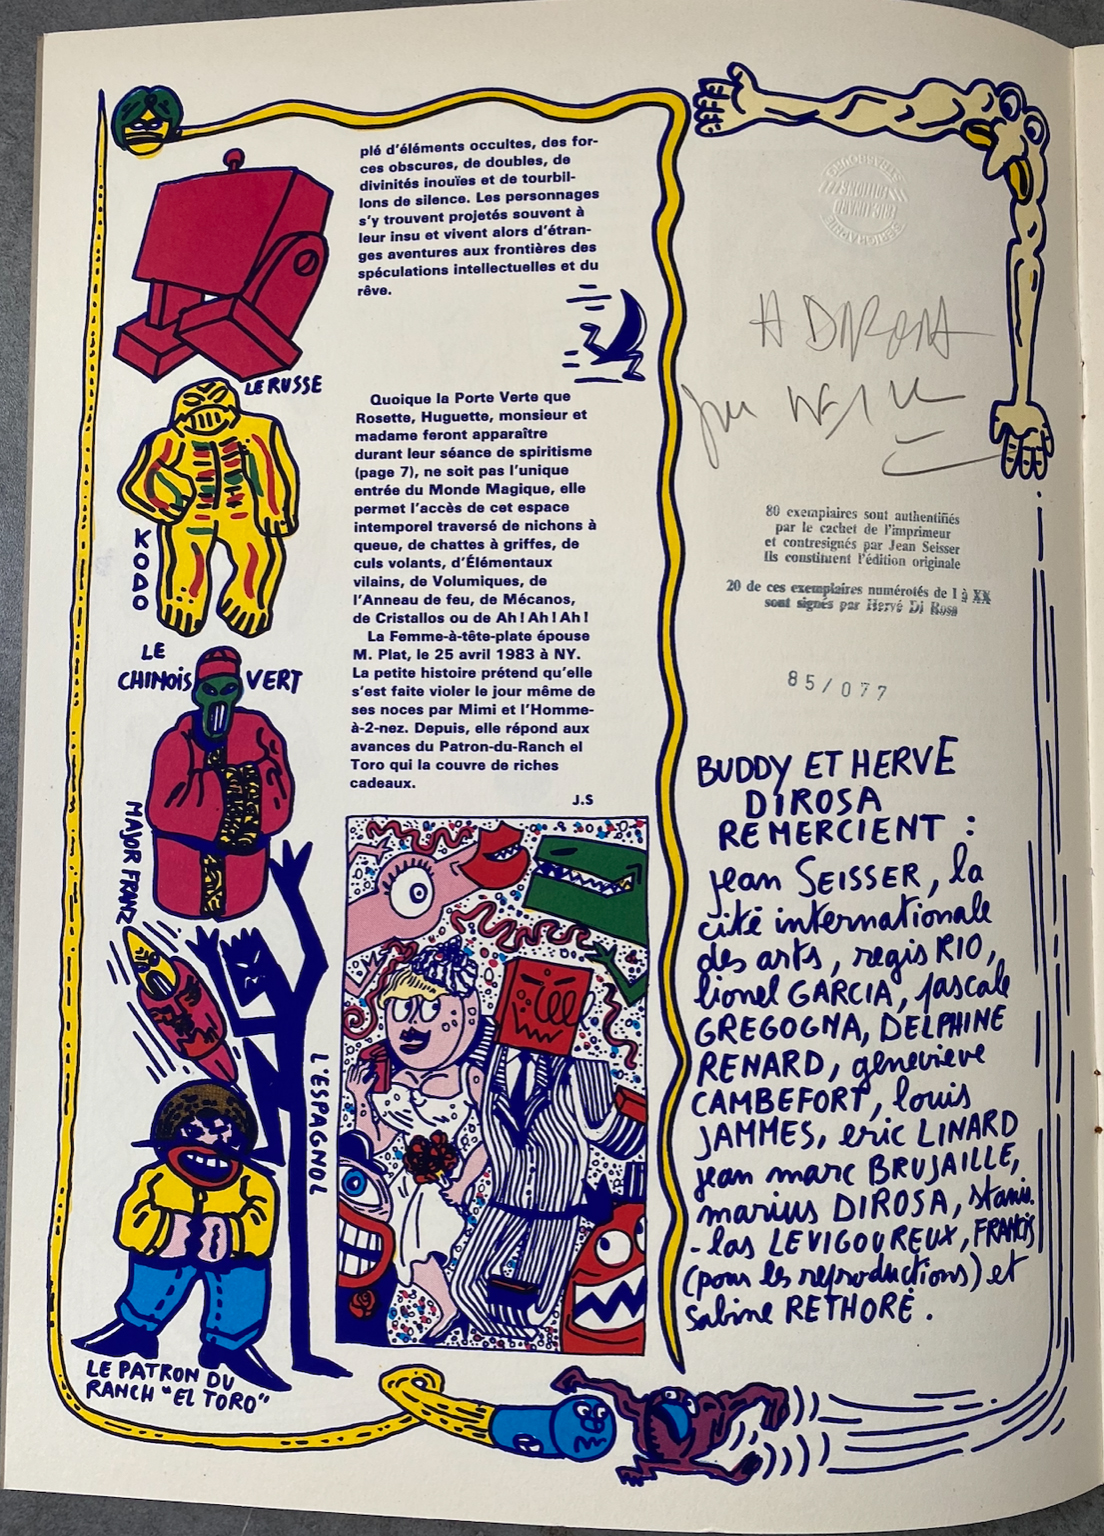 LE RUSSE
KODO
LE
CHINOIS VERT
MAJOR FRANZ
L'ESPAGNOL
LE PATRON DU
RANCH "EL TORO"
plé d'éléments occultes, des for-
ces obscures, de doubles, de
divinités inouïes et de tourbil-
lons de silence. Les personnages
s'y trouvent projetés souvent à
leur insu et vivent alors d'étran-
ges aventures aux frontières des
spéculations intellectuelles et du
rêve.
Quoique la Porte Verte que
Rosette, Huguette, monsieur et
madame feront apparaître
durant leur séance de spiritisme
(page 7), ne soit pas l'unique
entrée du Monde Magique, elle
permet l'accès de cet espace
intemporel traversé de nichons à
queue, de chattes à griffes, de
culs volants, d'Élémentaux
vilains, de Volumiques, de
l'Anneau de feu, de Mécanos,
de Cristallos ou de Ah ! Ah ! Ah !
La Femme-à-tête-plate épouse
M. Plat, le 25 avril 1983 à NY.
La petite histoire prétend qu'elle
s'est faite violer le jour même de
ses noces par Mimi et l'Homme-
à-2-nez. Depuis, elle répond aux
avances du Patron-du-Ranch el
Toro qui la couvre de riches
cadeaux.
J.S
ERIC LINARD
EDITIONS
A DIROSA
80 exemplaires sont authentifiés
par le cachet de l'imprimeur
et contresignés par Jean Seisser
Ils constituent l'édition originale
20 de ces exemplaires numérotés de I à XX
sont signés par Hervé Di Rosa
85/077
BUDDY ET HERVE
DIROSA
REMERCIENT :
jean SEISSER, la
cité internationale
des arts, regis RIO,
lionel GARCIA, pascale
GREGOGNA, DELPHINE
RENARD, genevieve
CAMBEFORT, louis
JAMMES, eric LINARD
jean marc BRUJAILLE,
marius DIROSA, stanis
-las LEVIGOUREUX, FRANCIS
(pour les reproductions) et
sabine RETHORÉ.